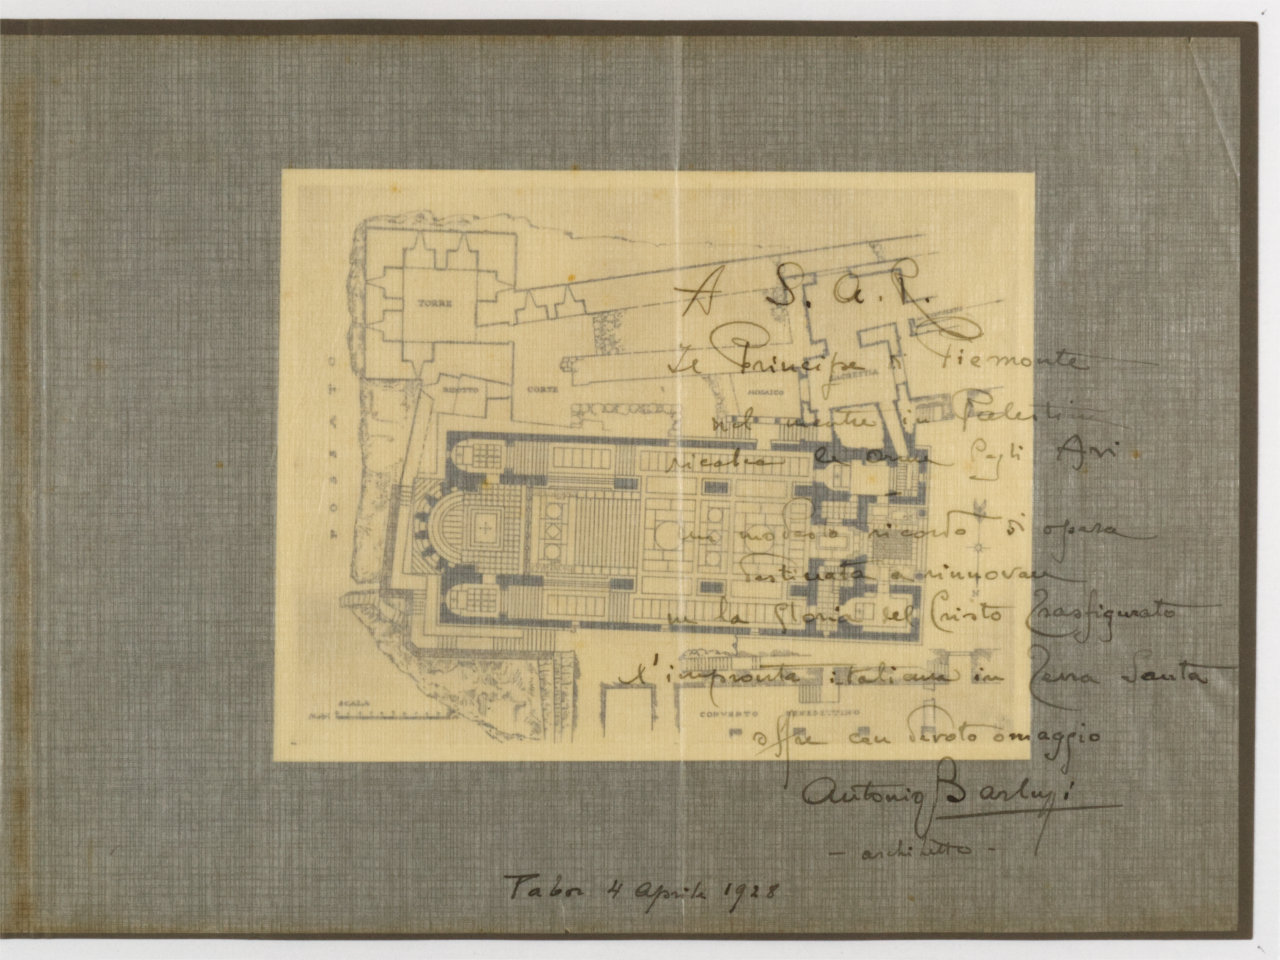 TORRE
FOSSATO
RIDOTTO
CORTE
MOSAICO
SACRESTIA
SCALA
CONVENTO BENEDETTINO
A S. A. R.
Il Principe di Piemonte
nel mentre in Palestina
ricalca le orme degli Avi
un modesto ricordo di opera
destinata a rinnovare
ne la gloria del Cristo Trasfigurato
l'impronta italiana in Terra Santa
offre con devoto omaggio
Antonio Barluzzi
- architetto -
Tabor 4 Aprile 1928